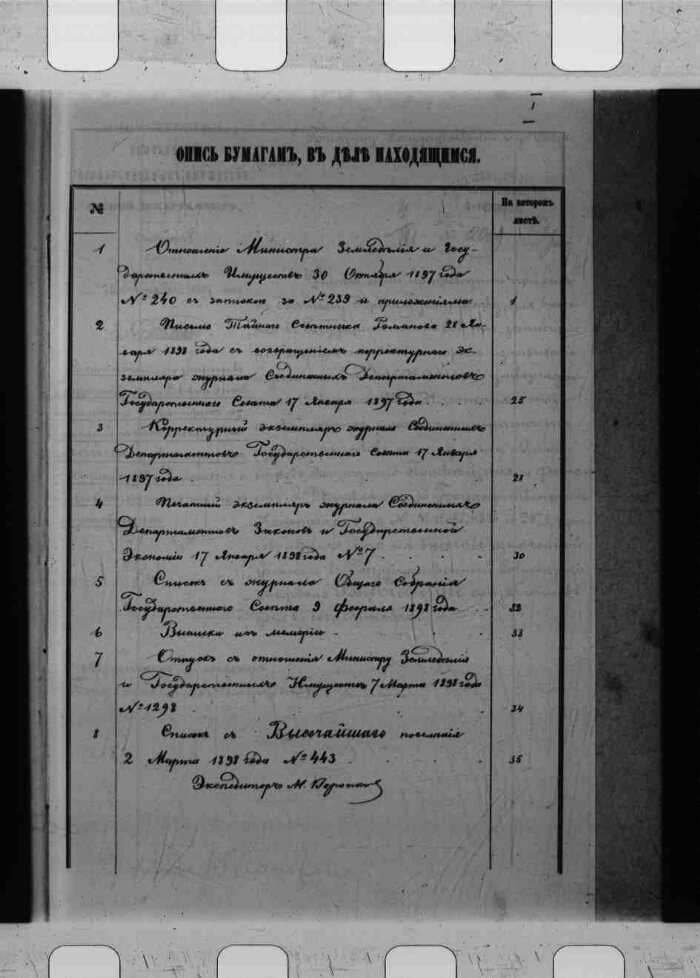 ОПИСЬ БУМАГАМЪ, ВЪ ДѢЛѢ НАХОДЯЩИМСЯ.
№
На которомъ
листѣ.
1 Отношеніе Министра Земледѣлія и Госу-
дарственныхъ Имуществъ 30 Октября 1897 года
№ 240 съ запискою за № 239 и приложеніями 1
2 Письмо Тайнаго Совѣтника Романова 28 Ян-
варя 1898 года съ возвращеніемъ корректурнаго эк-
земпляра журнала Соединенныхъ Департаментовъ
Государственнаго Совѣта 17 Января 1897 года 25
3 Корректурный экземпляръ журнала Соединенныхъ
Департаментовъ Государственнаго Совѣта 17 Января
1897 года 28
4 Печатный экземпляръ журнала Соединенныхъ
Департаментовъ Законовъ и Государственной
Экономіи 17 Января 1898 года № 7 30
5 Списокъ съ журнала Общаго Собранія
Государственнаго Совѣта 9 Февраля 1898 года 32
6 Выписка изъ меморіи 33
7 Отпускъ съ отношенія Министру Земледѣлія
и Государственныхъ Имуществъ 7 Марта 1898 года
№ 1298 34
8 Списокъ съ Высочайшаго повелѣнія
2 Марта 1898 года № 443 35
Экспедиторъ М.